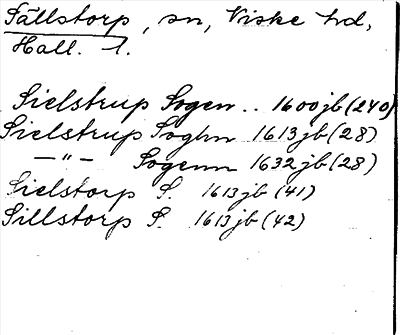 Sällstorp, sn, Viske hd,
Hall. l.
Sielstrup Sogen .. 1600 jb (240)
Sielstrup Soghn 1613 jb (28)
—"— Sogenn 1632 jb (28)
Sielstorp S. 1613 jb (41)
Sillstorp S. 1613 jb (42)